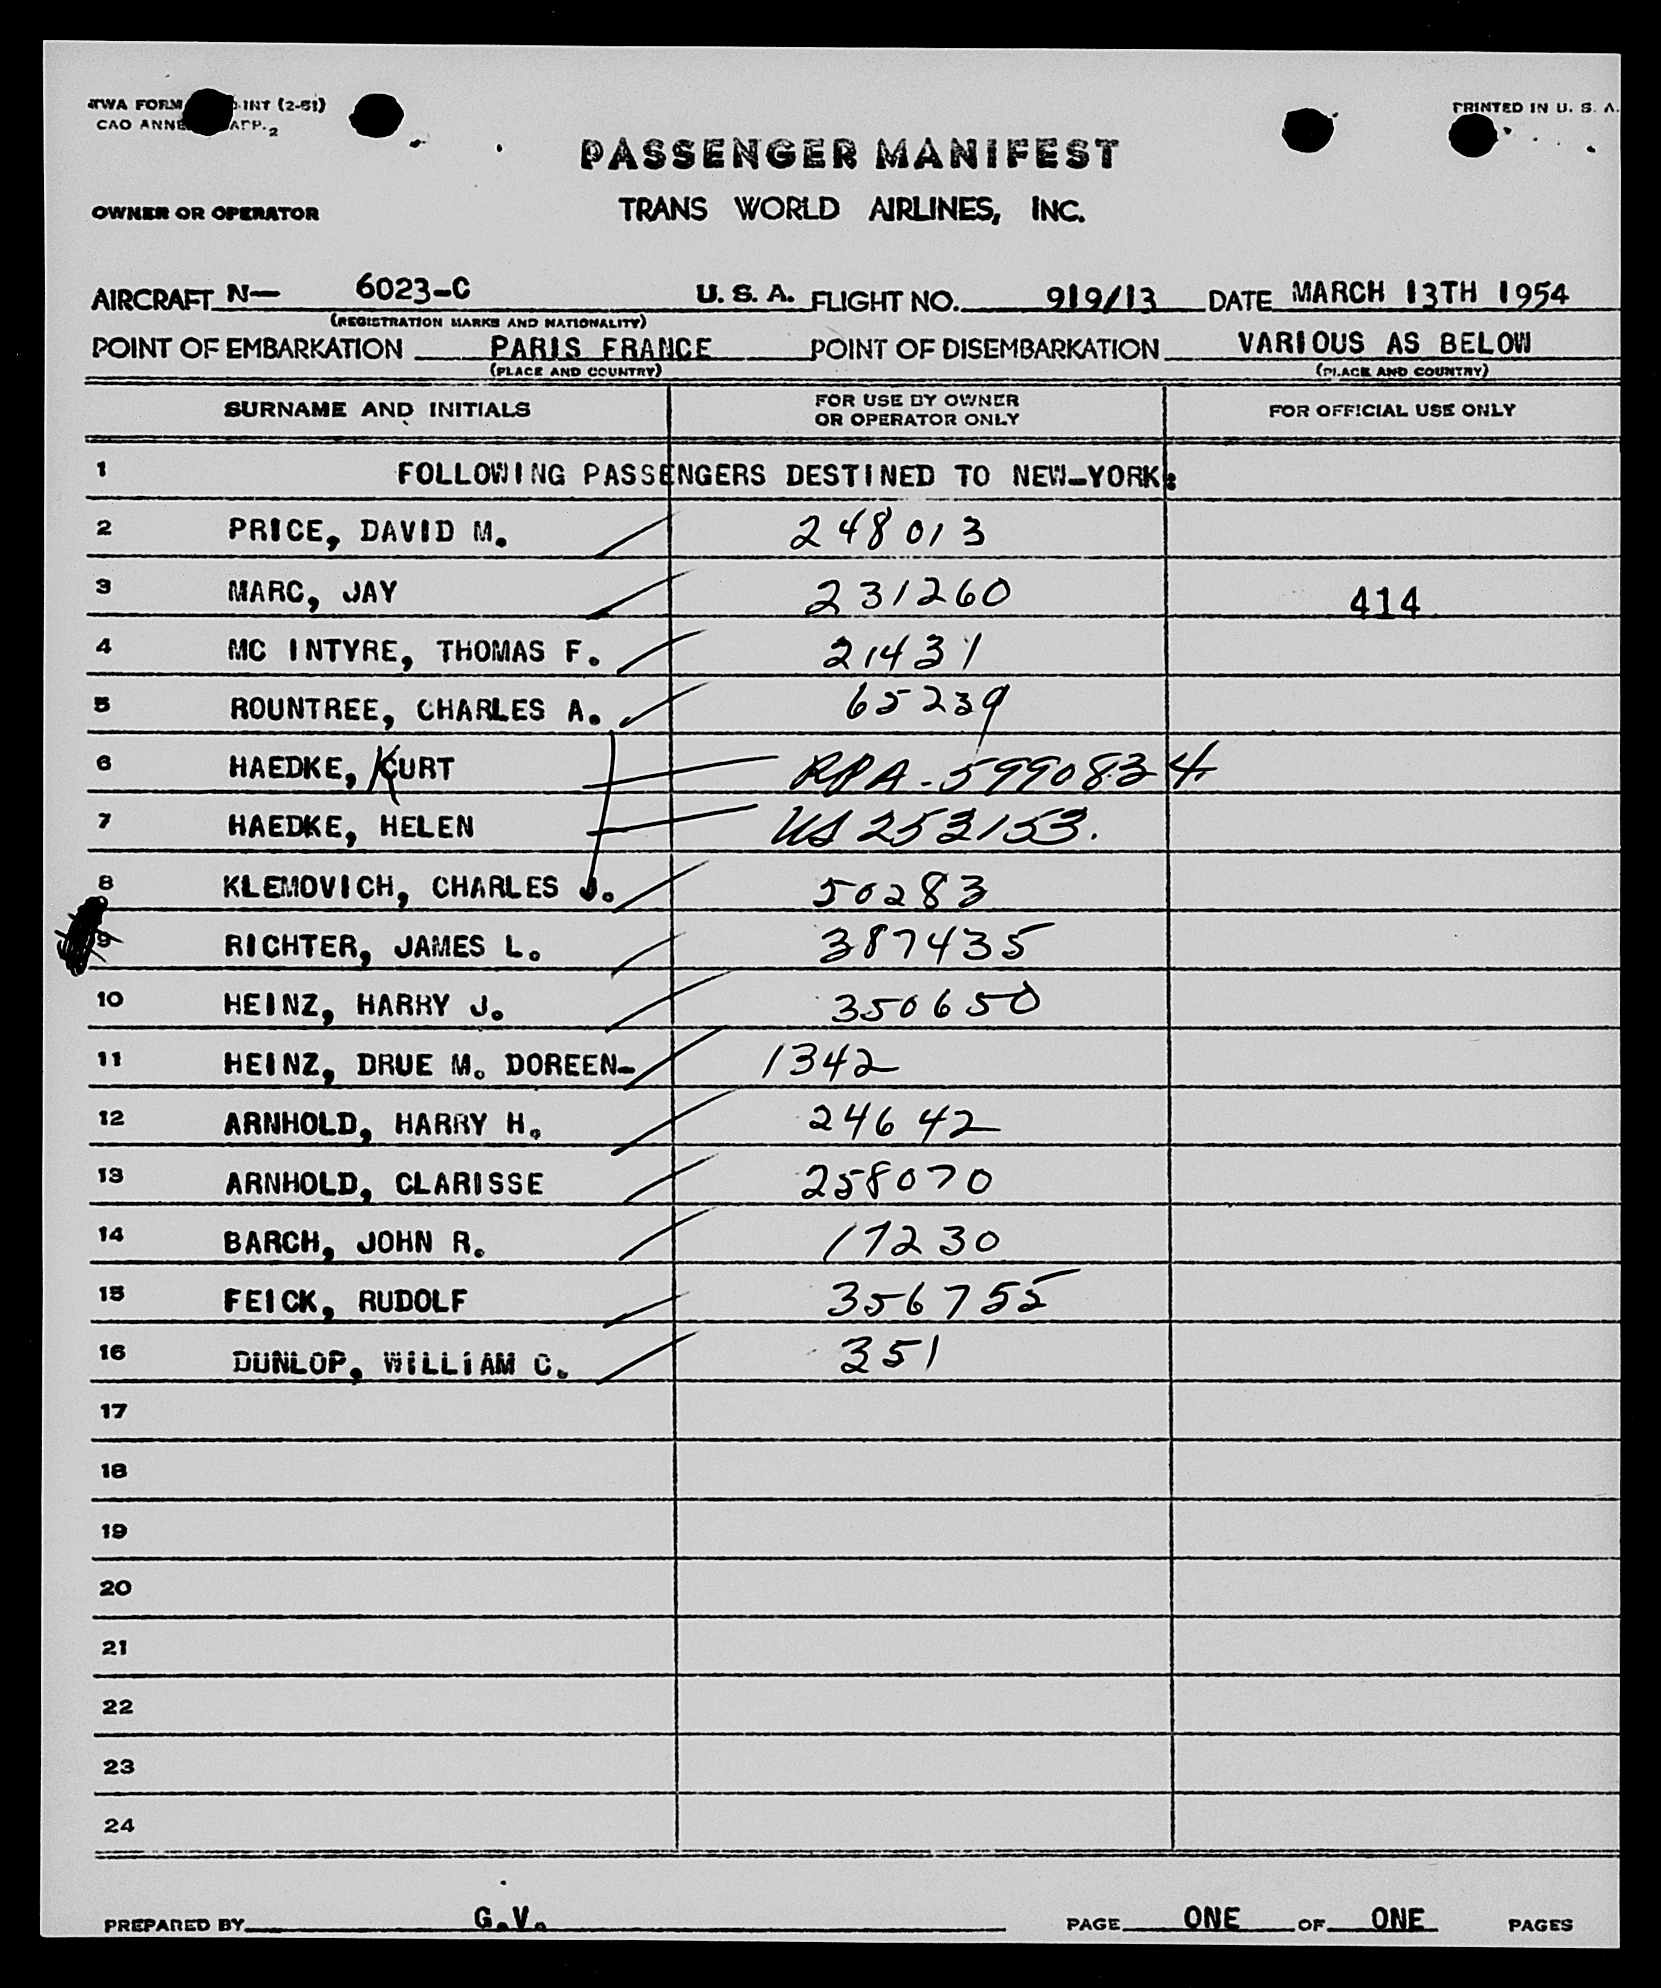 TWA FORM INT (2-51)
CAO ANNE APP. 2
PRINTED IN U. S. A.
PASSENGER MANIFEST
OWNER OR OPERATOR TRANS WORLD AIRLINES, INC.
AIRCRAFT N— 6023-C U. S. A. FLIGHT NO. 919/13 DATE MARCH 13TH 1954
(REGISTRATION MARKS AND NATIONALITY)
POINT OF EMBARKATION PARIS FRANCE POINT OF DISEMBARKATION VARIOUS AS BELOW
(PLACE AND COUNTRY) (PLACE AND COUNTRY)
SURNAME AND INITIALS FOR USE BY OWNER OR OPERATOR ONLY FOR OFFICIAL USE ONLY
1 FOLLOWING PASSENGERS DESTINED TO NEW-YORK:
2 PRICE, DAVID M. 248013
3 MARC, JAY 231260 414
4 MC INTYRE, THOMAS F. 21431
5 ROUNTREE, CHARLES A. 65239
6 HAEDKE, KURT RPA-5990834
7 HAEDKE, HELEN US 253153.
8 KLEMOVICH, CHARLES J. 50283
9 RICHTER, JAMES L. 387435
10 HEINZ, HARRY J. 350650
11 HEINZ, DRUE M. DOREEN- 1342
12 ARNHOLD, HARRY H. 24642
13 ARNHOLD, CLARISSE 258070
14 BARCH, JOHN R. 17230
15 FEICK, RUDOLF 356755
16 DUNLOP, WILLIAM C. 351
17
18
19
20
21
22
23
24
PREPARED BY G.V. PAGE ONE OF ONE PAGES